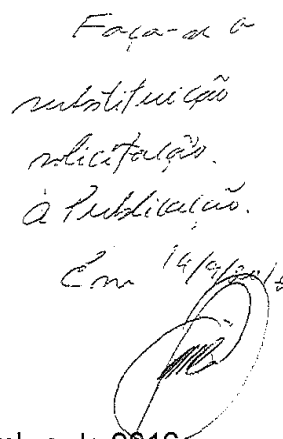 Faça-se a
substituição
solicitação.
à Publicação.
Em 14/9/2016
de 2016